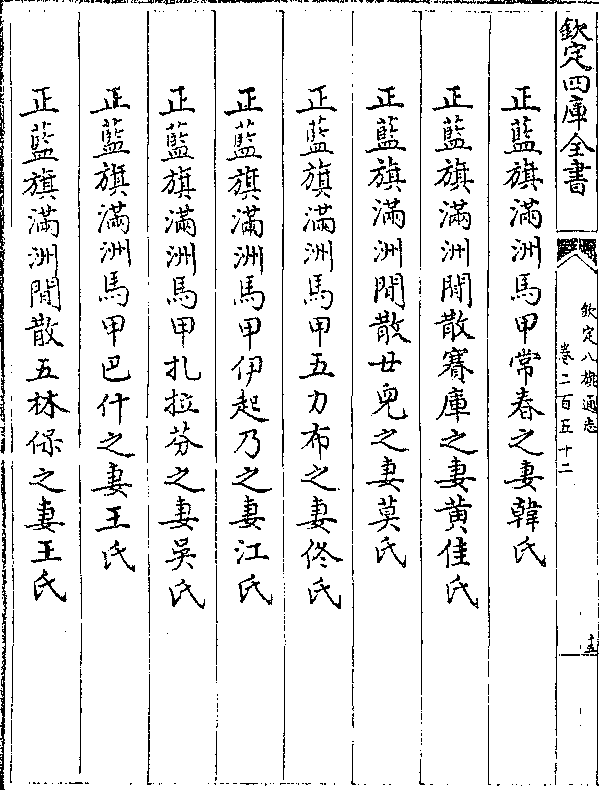 欽定四庫全書
欽定八旗通志
卷二百五十二
十五
正藍旗滿洲馬甲常春之妻韓氏
正藍旗滿洲閒散賽庫之妻黄佳氏
正藍旗滿洲閒散廿兒之妻莫氏
正藍旗滿洲馬甲五力布之妻佟氏
正藍旗滿洲馬甲伊起乃之妻江氏
正藍旗滿洲馬甲扎拉芬之妻吳氏
正藍旗滿洲馬甲巴什之妻王氏
正藍旗滿洲閒散五林保之妻王氏